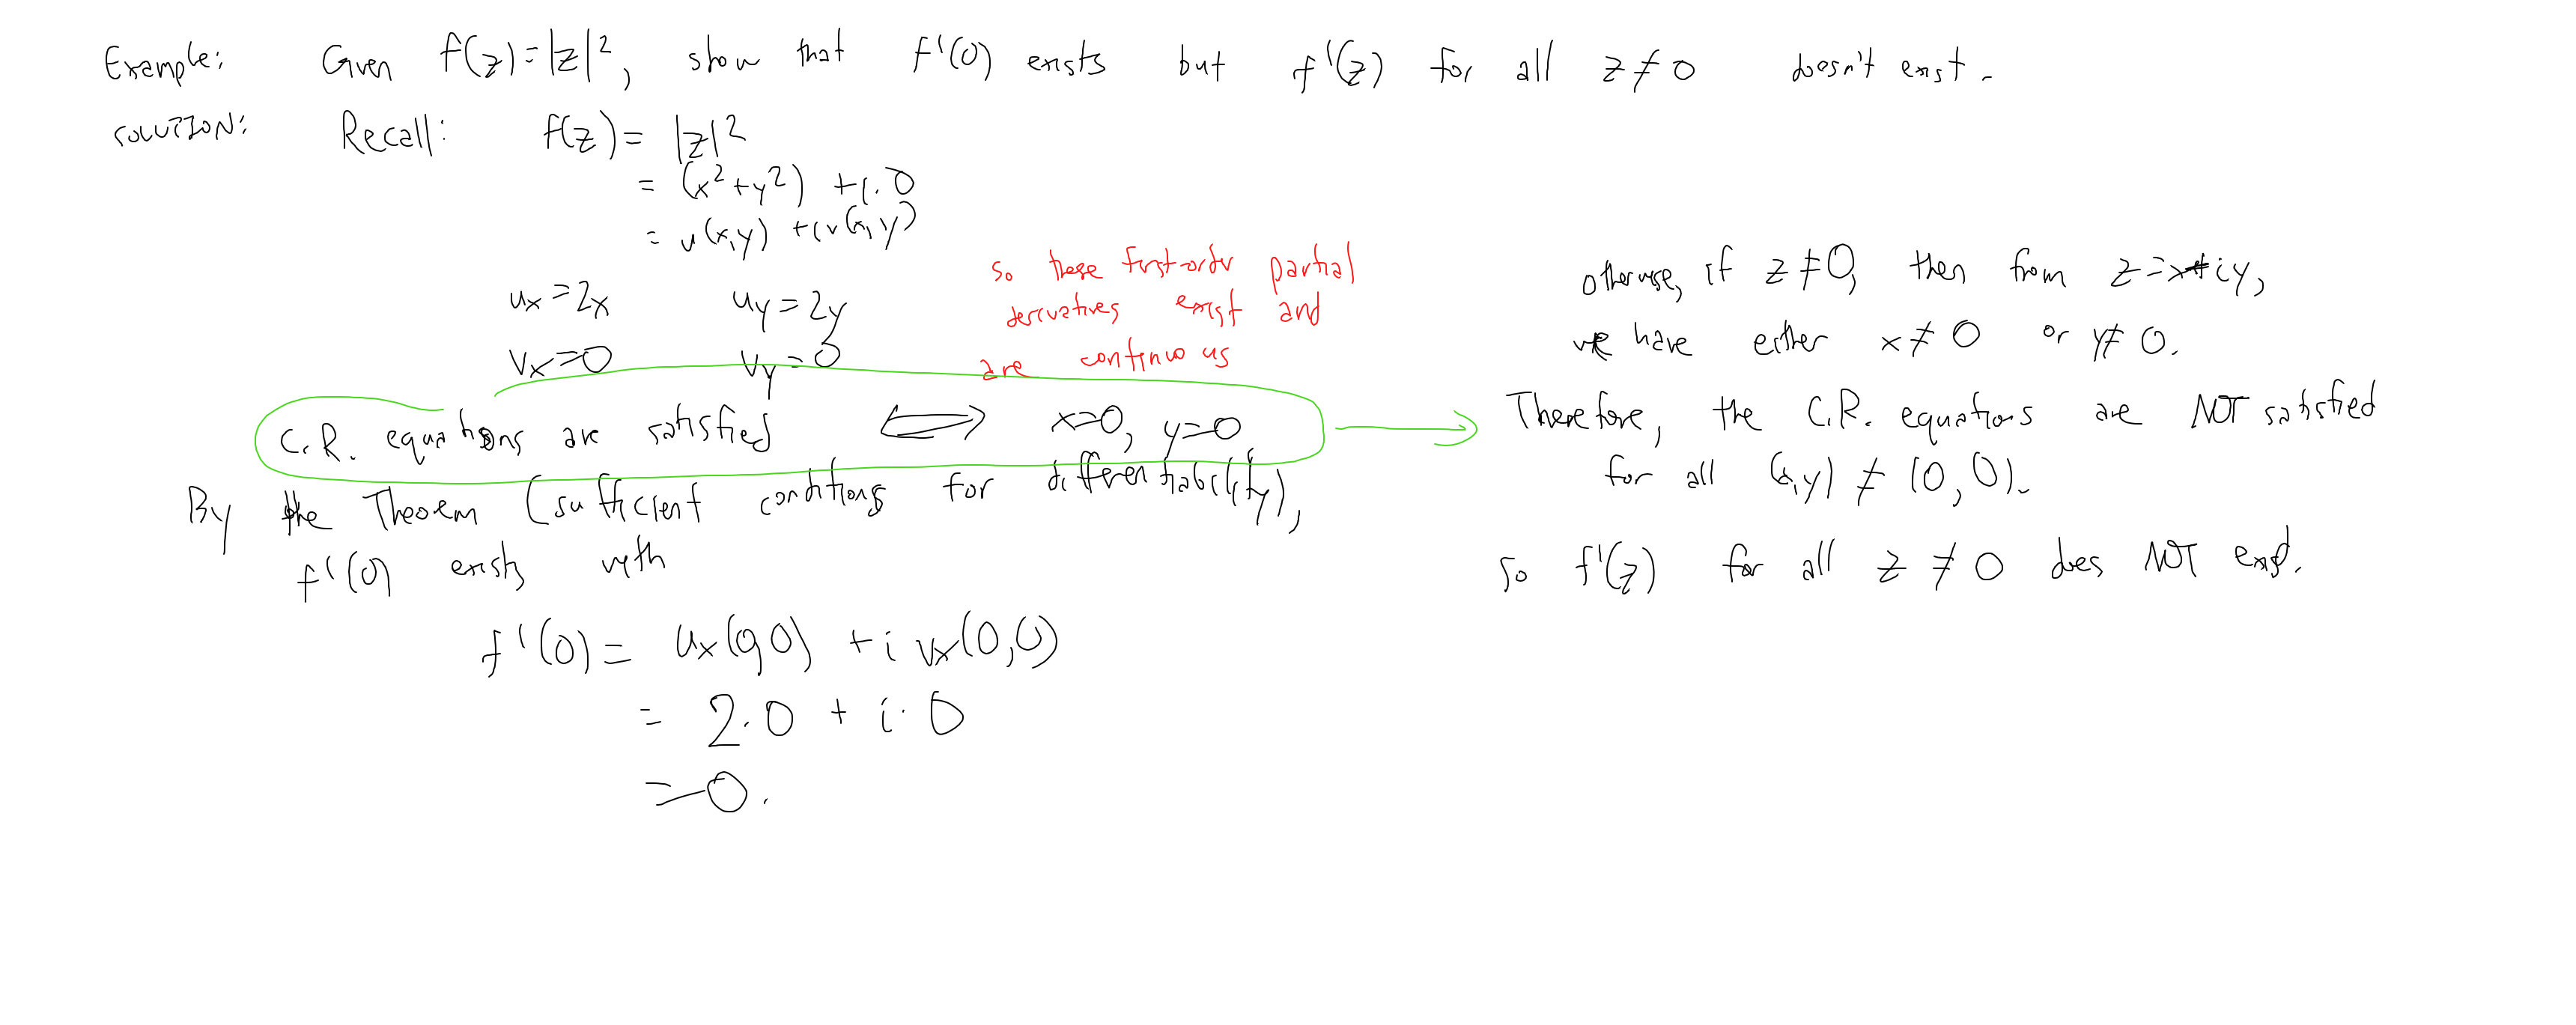 Example: Given f(z)=|z|², show that f'(0) exists but f'(z) for all z≠0 doesn't exist.
SOLUTION: Recall: f(z) = |z|²
= (x²+y²) + i.0
= u(x,y) + iv(x,y)
ux=2x uy=2y
vx=0 vy=0
so these first-order partial
derivatives exist and
are continuous
C.R. equations are satisfied ⟺ x=0, y=0
By the Theorem (sufficient conditions for differentiability),
f'(0) exists with
f'(0) = ux(0,0) + i vx(0,0)
= 2.0 + i.0
= 0.
otherwise, if z≠0, then from z=x+iy,
we have either x≠0 or y≠0.
Therefore, the C.R. equations are NOT satisfied
for all (x,y) ≠ (0,0).
So f'(z) for all z ≠ 0 does NOT exist.